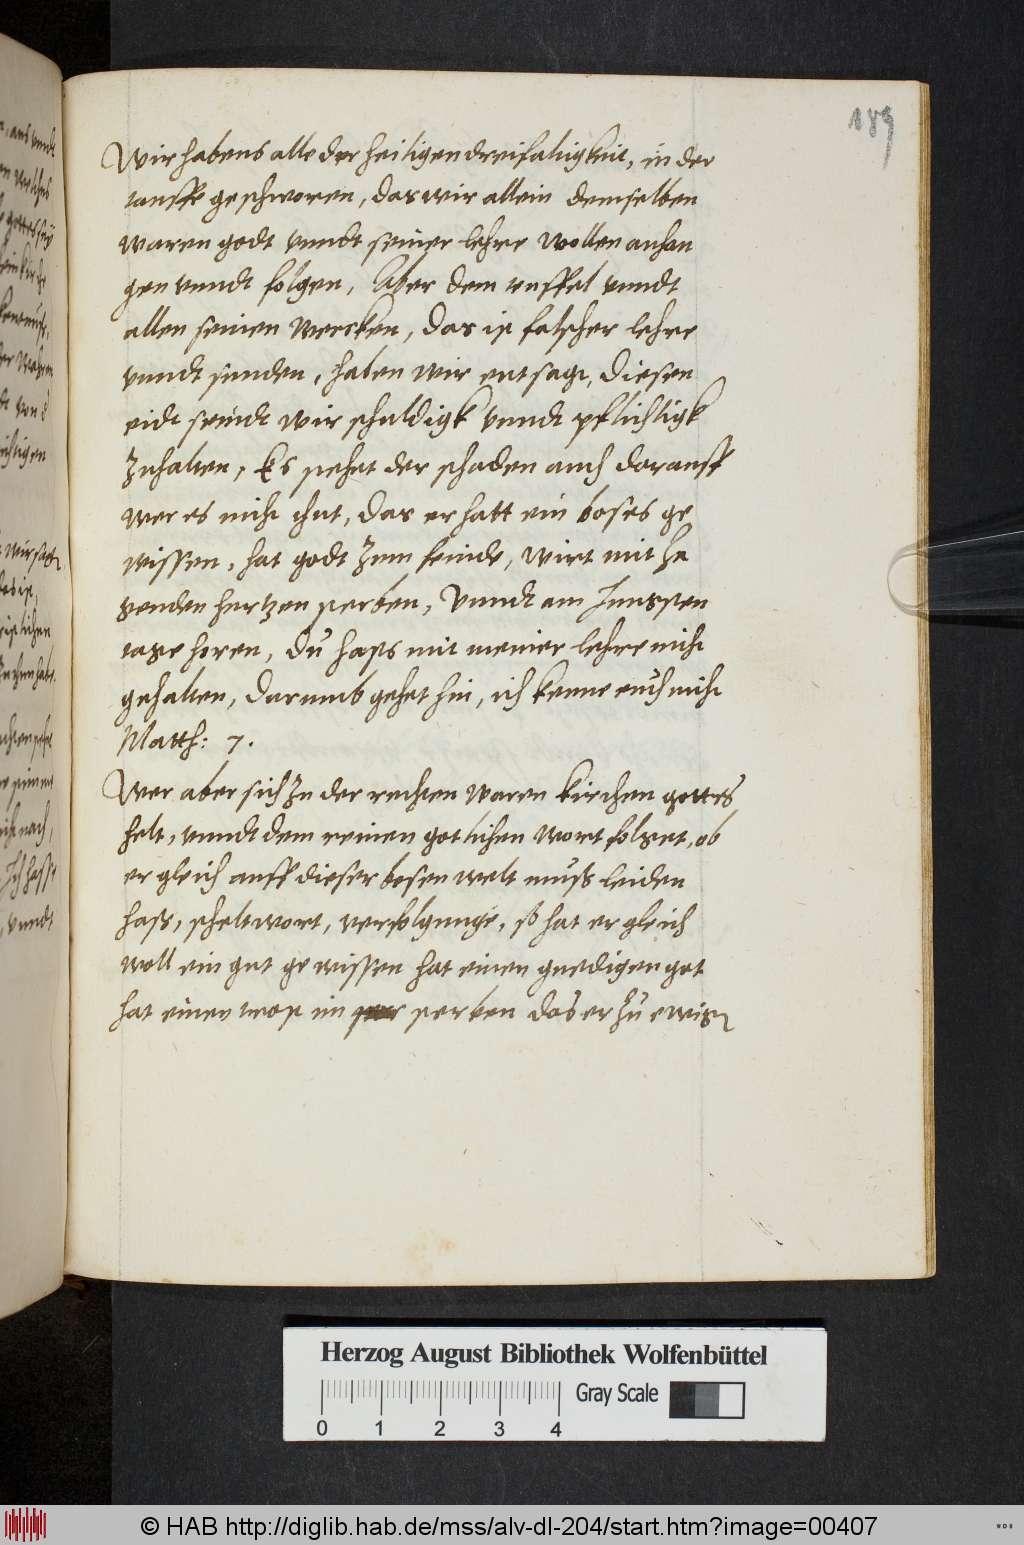 189
Wir habens alle der heiligen dreifaltigkeit, in der
tauffe geschworen, das wir allein demselben
waren godt vnndt seiner lehre wollen anhan
gen vnndt folgen, Aber dem teuffel vnndt
allen seinen wercken, das ist falscher lehre
vnndt sunden, haben wir entsagt, Diesen
eidt seindt wir schuldigk vnndt pflichtigk
Zuhalten, Es stehet der schaden auch darauff
wer es nicht thut, das er hatt ein boses ge
wissen, hat godt Zum feinde, wirt mit
hertzen sterben, Vnndt am Jungsten
tage horen, du hast mit meiner lehre nicht
gehalten, darumb gehet hin, ich kenne euch nicht
Matth: 7.
Wer aber sich Zu der rechten waren kirchen gottes
helt, vnndt dem reinen gotlichen wort folget, ob
er gleich auff dieser bosen welt muß leiden
haß, scheltwort, verfolgunge, so hat er gleich
woll ein gut gewissen hat einen gnedigen got
hat einen trost im sterben das er zu ewig
vnndt
Herzog August Bibliothek Wolfenbüttel
Gray Scale
0 1 2 3 4
© HAB http://diglib.hab.de/mss/alv-dl-204/start.htm?image=00407